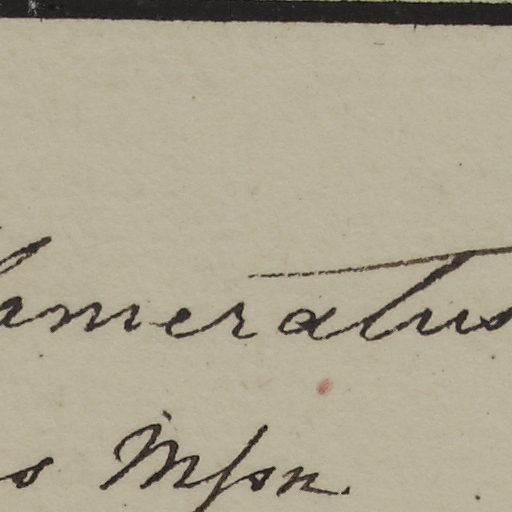 lameratus
s Mſsn.